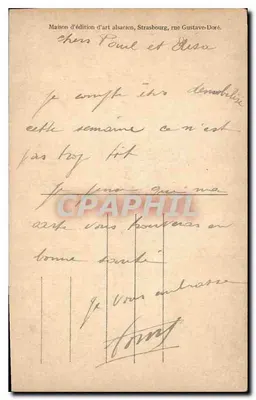 Maison d'édition d'art alsacien, Strasbourg, rue Gustave-Doré.
chers Paul et Elisa
je compte être demobilize
cette semaine ce n'est
pas trop tôt
Je pense que ma
carte vous trouveras en
bonne santé
je vous embrasse